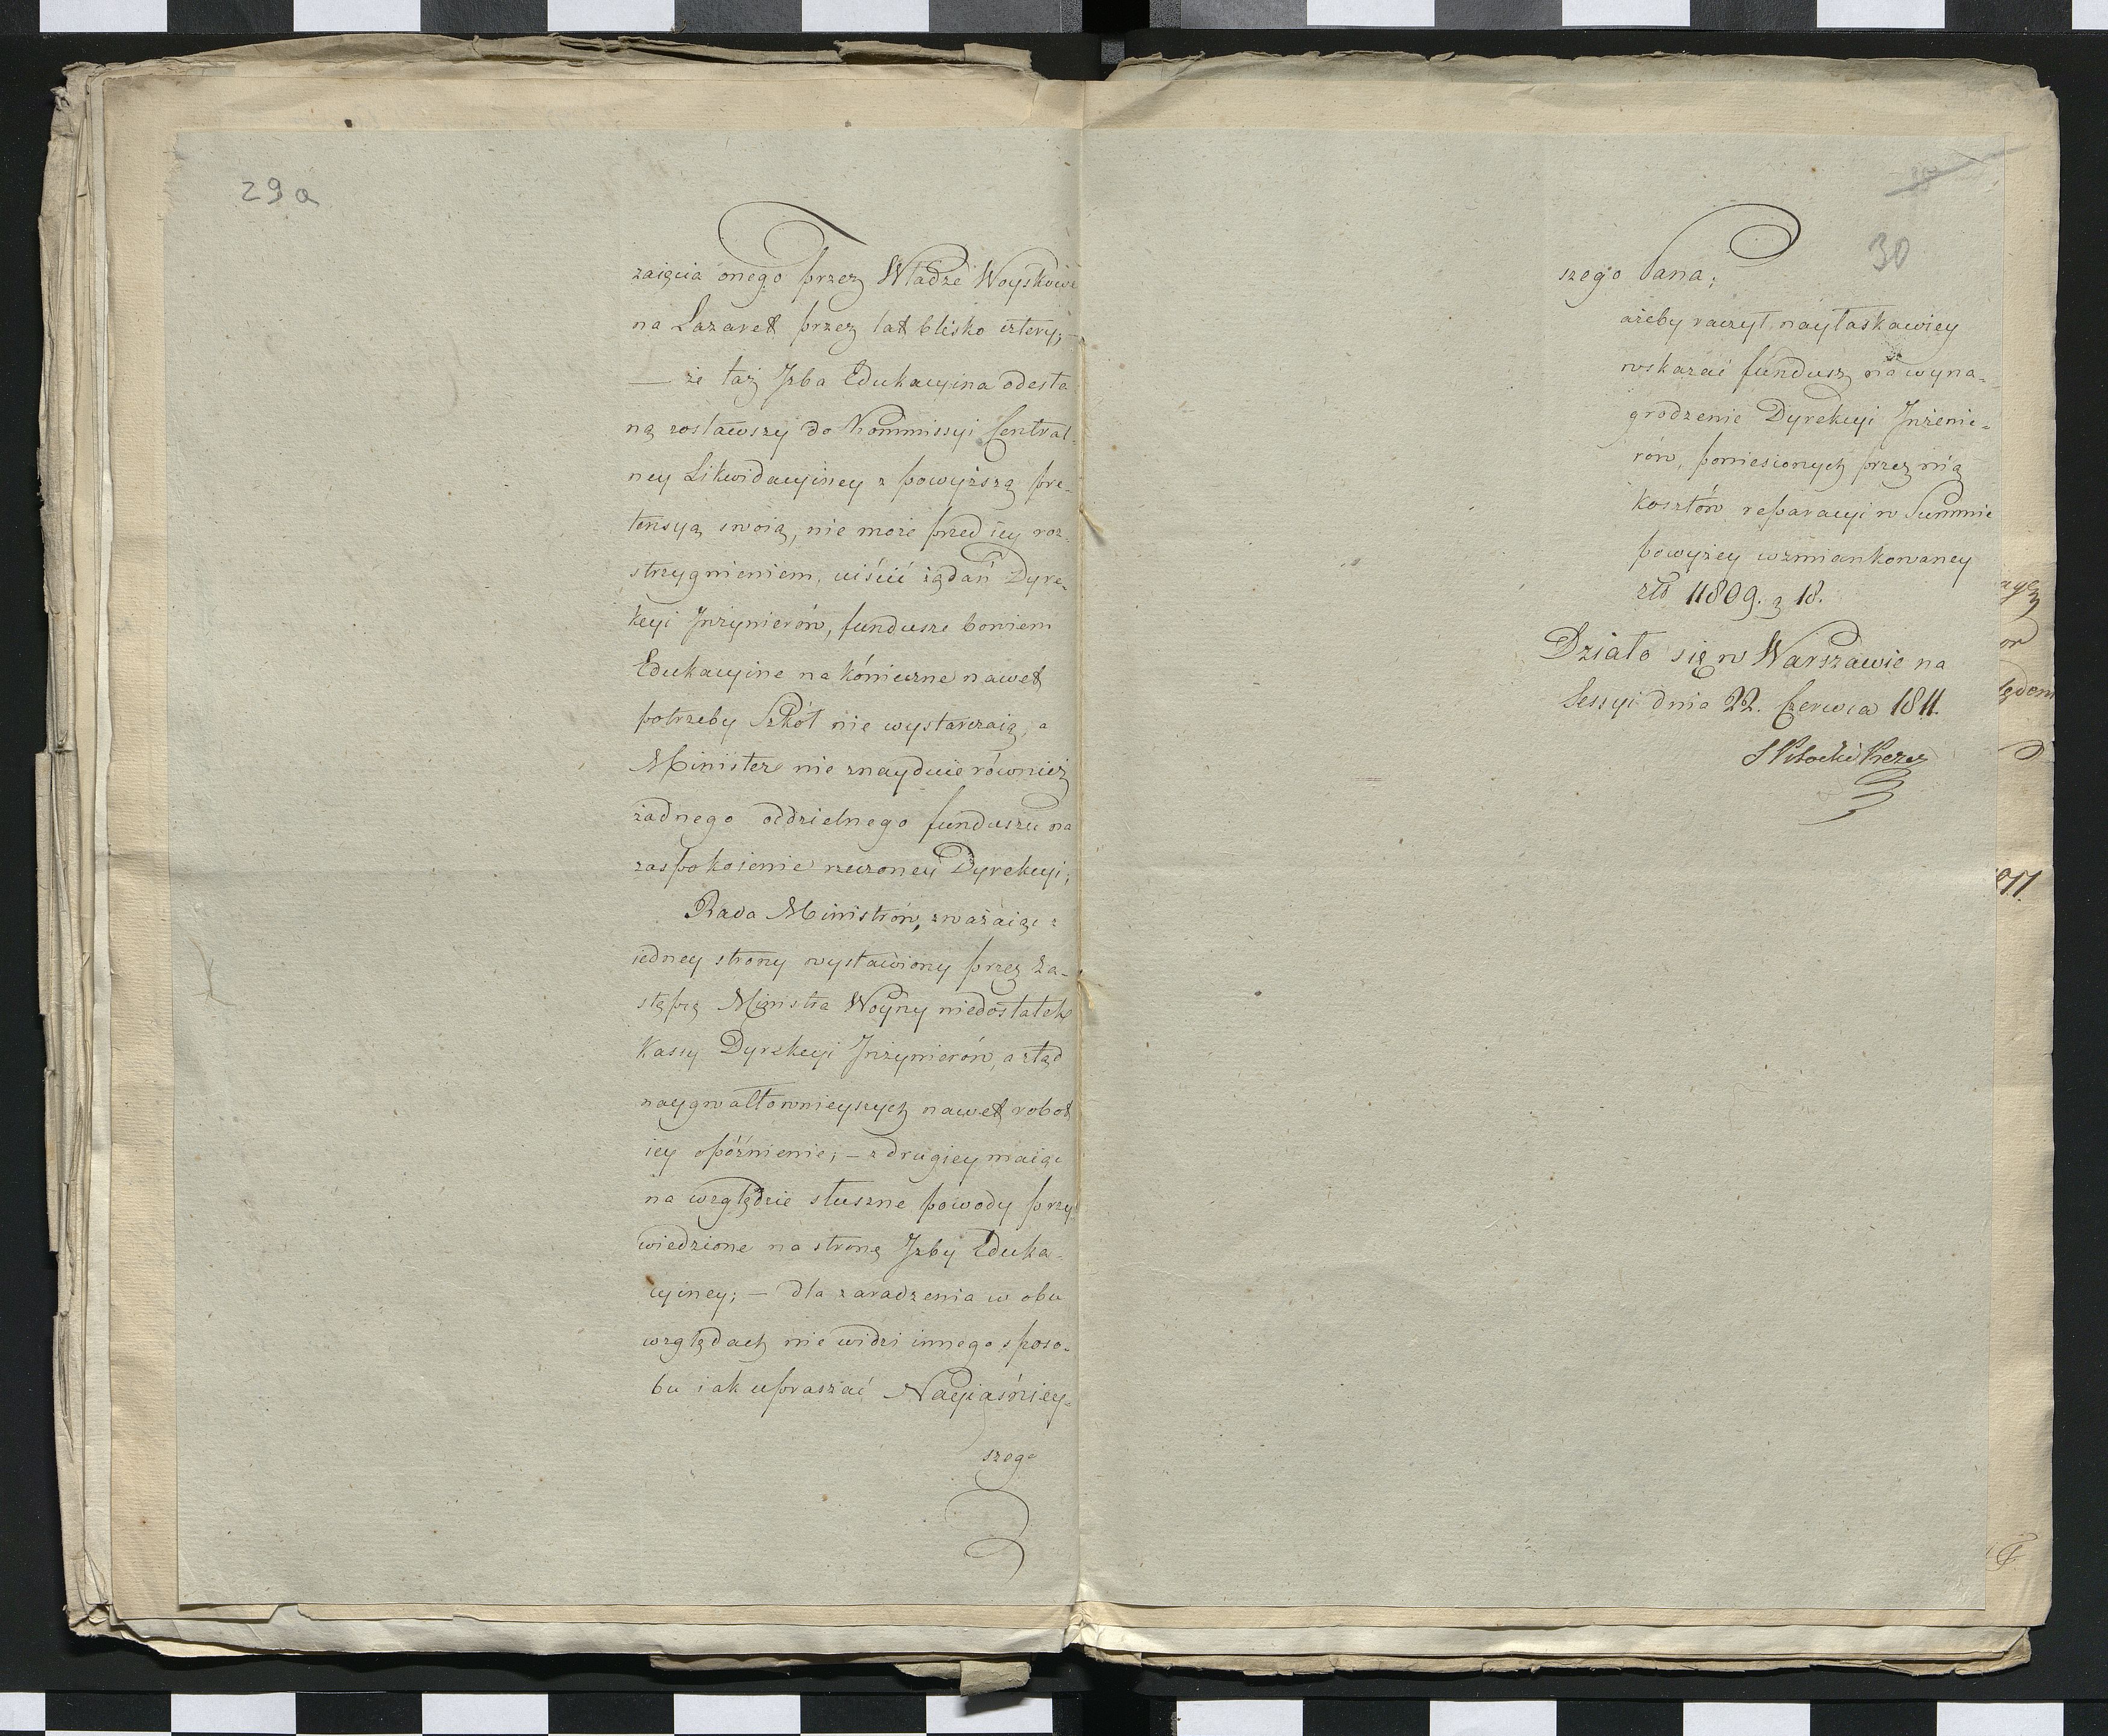 29a
zaięcia onego przez Władze Woyskowe
na Lazaret przez lat blisko cztery;
— że taż Jzba Edukacyina odesła
ną zostawszy do Kommissyi Central-
ney Likwidacyiney z powyższą pre-
tensyą swoią, nie może przed iey roz-
strzygnieniem, uiścić żądań Dyre-
kcyi Jnżynierów, fundusze bowiem
Edukacyine na kónieczne nawet
potrzeby Szkół nie wystarczaią, a
Minister nie znayduie również
żadnego oddzielnego funduszu na
zaspokoienie rzeczoney Dyrekcyi;
Rada Ministrów, zważaiąc z
iedney strony wystawiony przez Za-
stępcę Ministra Woyny niedostatek
Kassy Dyrekcyi Jnżynierów, a ztąd
naygwałtownieyszych nawet robot
iey opóźnienie; — z drugiey maiąc
na względzie słuszne powody przy
wiedzione na stronę Jzby Eduka-
cyiney; — dla zaradzenia w obu
względach nie widzi innego sposo-
bu iak upraszać Nayiaśniey-
szego
30
szego Pana;
ażeby raczył nayłaskawiey
wskazać fundusz na wyna-
grodzenie Dyrekcyi Jnżenie-
rów, poniesionych przez nią
kosztów reparacyi w Summie
powyżey wzmiankowaney
złt 11809. g 18.
Działo się w Warszawie na
Sessyi dnia 22. Czerwca 1811.
S Potocki Prezes